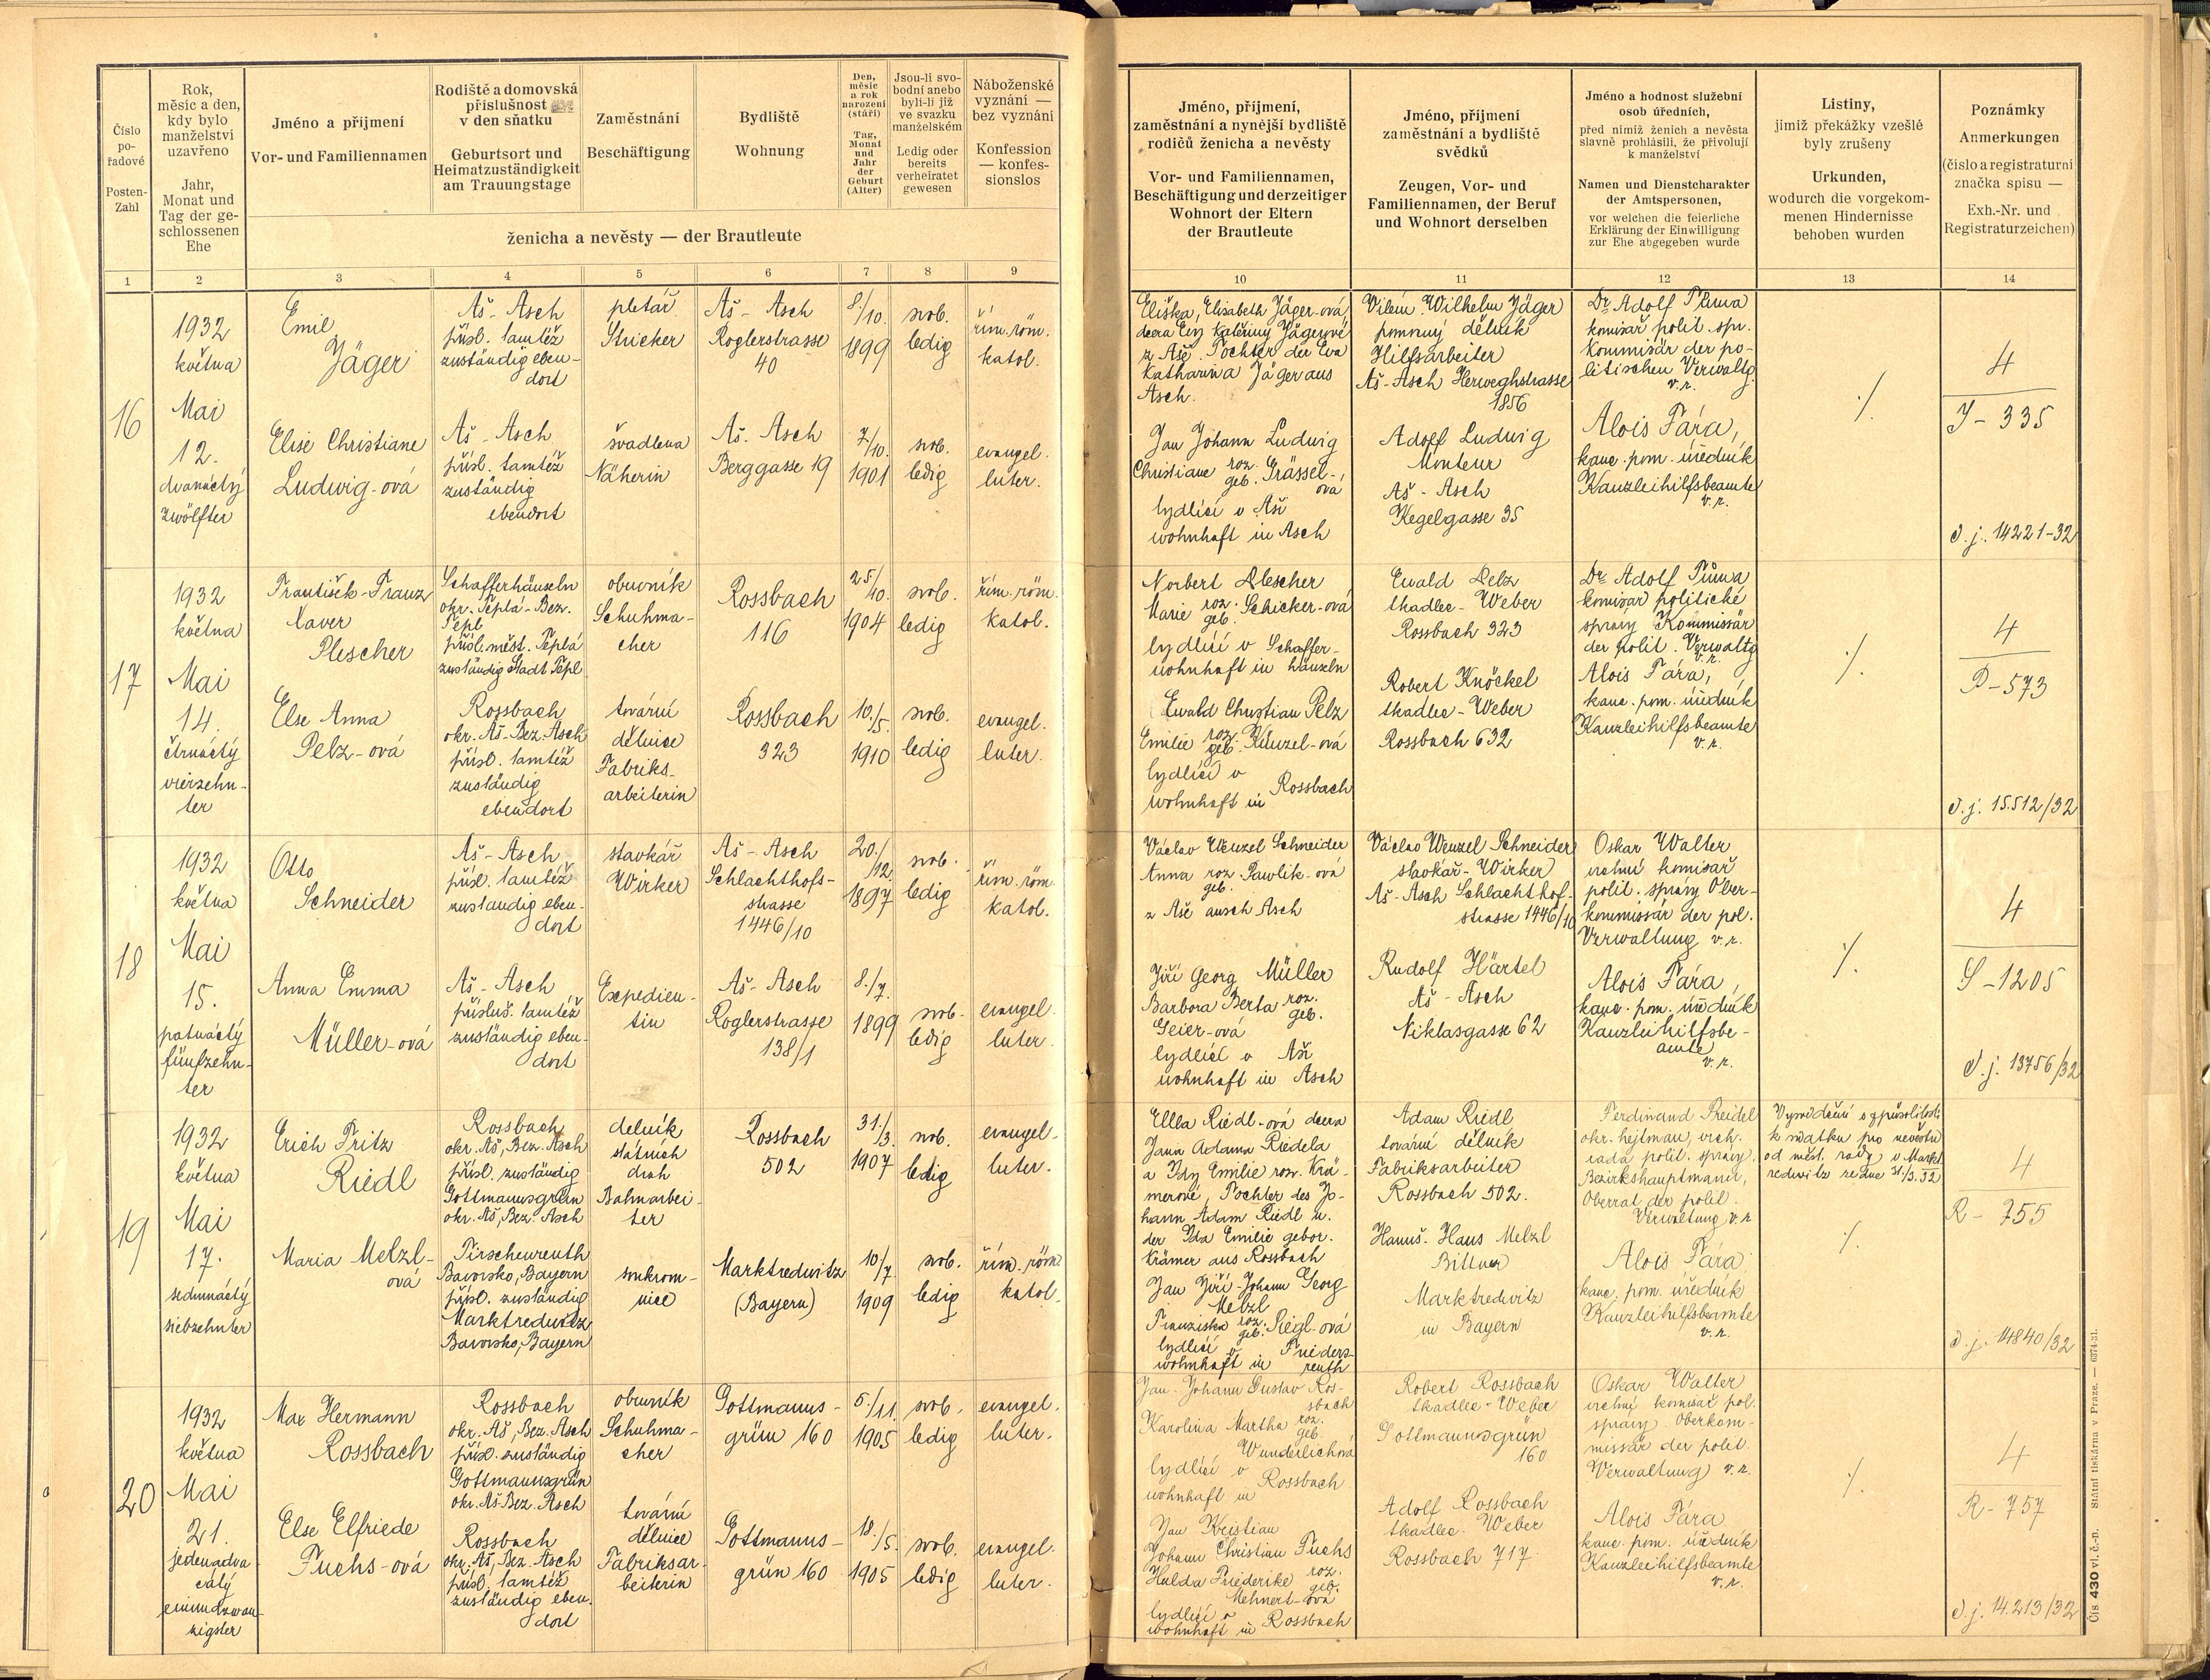 Číslo
po-
řadové
Posten-
Zahl
Rok,
měsíc a den,
kdy bylo
manželství
uzavřeno
Jahr,
Monat und
Tag der ge-
schlossenen
Ehe
Jméno a příjmení
Vor- und Familiennamen
Rodiště a domovská
příslušnost
v den sňatku
Geburtsort und
Heimatzuständigkeit
am Trauungstage
Zaměstnání
Beschäftigung
Bydliště
Wohnung
Den,
měsíc
a rok
narození
(stáří)
Tag,
Monat
und
Jahr
der
Geburt
(Alter)
Jsou-li svo-
bodní anebo
byli-li již
ve svazku
manželském
Ledig oder
bereits
verheiratet
gewesen
Náboženské
vyznání —
bez vyznání
Konfession
— konfes-
sionslos
ženicha a nevěsty — der Brautleute
Jméno, příjmení,
zaměstnání a nynější bydliště
rodičů ženicha a nevěsty
Vor- und Familiennamen,
Beschäftigung und derzeitiger
Wohnort der Eltern
der Brautleute
Jméno, příjmení
zaměstnání a bydliště
svědků
Zeugen, Vor- und
Familiennamen, der Beruf
und Wohnort derselben
Jméno a hodnost služební
osob úředních,
před nimiž ženich a nevěsta
slavně prohlásili, že přivolují
k manželství
Namen und Dienstcharakter
der Amtspersonen,
vor welchen die feierliche
Erklärung der Einwilligung
zur Ehe abgegeben wurde
Listiny,
jimiž překážky vzešlé
byly zrušeny
Urkunden,
wodurch die vorgekom-
menen Hindernisse
behoben wurden
Poznámky
Anmerkungen
(číslo a registraturní
značka spisu —
Exh.-Nr. und
Registraturzeichen)
1 2 3 4 5 6 7 8 9 10 11 12 13 14
16
1932
května
Mai
12.
dvanáctý
zwölfter
Emil
Jäger
Aš - Asch
přísl. tamtéž
zuständig eben-
dort
pletař
Stricker
Aš - Asch
Roglerstrasse
40
8./10.
1899
svob.
ledig
řím. röm.
katol.
Elise Christiane
Ludwig-ová
Aš - Asch
přísl. tamtéž
zuständig
ebendort
švadlena
Näherin
Aš. Asch
Berggasse 19
7./10.
1901
svob.
ledig
evangel.
luter.
Eliška, Elisabeth Jäger-ová,
dcera Evy Kateřiny Jägerové
z Aše. Tochter der Eva
Katharina Jäger aus
Asch.
Jan Johann Ludwig
Christiane roz. geb. Grässel-
ová
bydlící v Aši
wohnhaft in Asch
Vilém. Wilhelm Jäger
pomocný dělník
Hilfsarbeiter
Aš-Asch Herweghstrasse
1856
Adolf Ludwig
Monteur
Aš - Asch
Kegelgasse 35
Dr. Adolf Tůma
komisař polit. spr.
Kommissär der po-
litischen Verwaltg.
v. r.
Alois Fára,
kanc. pom. úředník
Kanzleihilfsbeamte
v. r.
./.
4
J - 335
d. j. 14221-32
17
1932
května
Mai
14.
čtrnáctý
vierzehn-
ter
František-Franz
Xaver
Plescher
Schafferhäuseln
okr. Teplá-Bez.
Tepl
přísl. měst. Teplá
zuständig Stadt Tepl
obuvník
Schuhma-
cher
Rossbach
116
25/10.
1904
svob.
ledig
řím. röm.
katol.
Else Anna
Pelz-ová
Rossbach
okr. Aš-Bez. Asch
přísl. tamtéž
zuständig
ebendort
tovární
dělnice
Fabriks-
arbeiterin
Rossbach
323
10./5.
1910
svob.
ledig
evangel.
luter.
Norbert Plescher
Marie roz. geb. Schicker-ová
bydlící v Schaffer-
wohnhaft in häuzeln
Ewald Christian Pelz
Emilie roz. geb. Künzel-ová
bydlící v
wohnhaft in Rossbach
Ewald Pelz
tkadlec - Weber
Rossbach 323
Robert Knöckel
tkadlec - Weber
Rossbach 632
Dr. Adolf Tůma
komisař politické
správy Kommissär
der polit. Verwaltg
v. r.
Alois Fára,
kanc. pom. úředník
Kanzleihilfsbeamte
v. r.
./.
4
P - 573
d. j. 15.512/32
18
1932
května
Mai
15.
patnáctý
fünfzehn-
ter
Otto
Schneider
Aš - Asch
přísl. tamtéž
zuständig eben-
dort
stavkář
Wirker
Aš - Asch
Schlachthof-
strasse
1446/10
20./12.
1897
svob.
ledig
řím. röm.
katol.
Anna Emma
Müller-ová
Aš - Asch
přísluš. tamtéž
zuständig eben-
dort
Expedien-
tin
Aš - Asch
Roglerstrasse
138/1
8./7.
1899
svob.
ledig
evangel.
luter.
Václav Wenzel Schneider
Anna roz. geb. Pawlik-ová
z Aše ausch Asch
Jiří Georg Müller
Barbora Berta roz. geb.
Geier-ová
bydlící v Aši
wohnhaft in Asch
Václav Wenzel Schneider
stavkář - Wirker
Aš-Asch Schlachthof-
strasse 1446/10
Rudolf Härtel
Aš - Asch
Niklasgasse 62
Oskar Walter
vrchní komisař
polit. správy Ober-
kommissär der pol.
Verwaltung v. r.
Alois Fára,
kanc. pom. úředník
Kanzleihilfsbe-
amte
v. r.
./.
4
S - 1205
d. j. 13756/32
19
1932
května
Mai
17.
sedmnáctý
siebzehnter
Erich Fritz
Riedl
Rossbach
okr. Aš, Bez. Asch
přísl. zuständig
Gottmannsgrün
okr. Aš, Bez. Asch
dělník
státních
drah
Bahnarbei-
ter
Rossbach
502
31./3.
1907
svob.
ledig
evangel.
luter.
Maria Melzl-
ová
Tirschenreuth
Bavorsko, Bayern
přísl. zuständig
Marktredwitz
Bavorsko, Bayern
soukrom-
nice
Marktredwitz
(Bayern)
10/7.
1909
svob.
ledig
řím. röm.
katol.
Ella Riedl-ová dcera
Jana Adama Riedela
a Idy Emilie roz. Krä-
merové, Tochter des Jo-
hann Adam Riedl u.
der Ida Emilie gebor.
Krämer aus Rossbach
Jan Jiří - Johann Georg
Melzl
Franziska roz. geb. Siegl-ová
bydlící v Frieders-
wohnhaft in reuth
Adam Riedl
tovární dělník
Fabriksarbeiter
Rossbach 502.
Hanuš - Hans Melzl
Marktredwitz
in Bayern
Ferdinand Preidel
okr. hejtman, vrch.
rada polit. správy.
Bezirkshauptmann,
Oberrat der polit.
Verwaltung v. r.
Alois Fára
kanc. pom. úředník
Kanzleihilfsbeamte
v. r.
Vysvědčení o způsobilosti
k sňatku pro nevěstu
od měst. rady v Markt
redwitz ze dne 31./3. 32
./.
4
R - 755
d. j. 14840/32
20
1932
května
Mai
21.
jedenadva-
cátý
einundzwan-
zigster
Max Hermann
Rossbach
Rossbach
okr. Aš, Bez. Asch
přísl. zuständig
Gottmannsgrün
okr. Aš-Bez. Asch
obuvník
Schuhma-
cher
Gottmanns-
grün 160
5./11.
1905
svob.
ledig
evangel.
luter.
Else Elfriede
Fuchs-ová
Rossbach
okr. Aš, Bez. Asch
přísl. tamtéž
zuständig eben-
dort
tovární
dělnice
Fabriksar-
beiterin
Gottmanns-
grün 160
18./5.
1905
svob.
ledig
evangel.
luter.
Jan - Johann Gustav Ros-
sbach
Karolina Martha roz. geb.
Wunderlichová
bydlící v
wohnhaft in Rossbach
Jan Kristian
Johann Christian Fuchs
Hulda Friederike roz. geb.
Mehnert-ová
bydlící v
wohnhaft in Rossbach
Robert Rossbach
tkadlec - Weber
Gottmannsgrün
160
Adolf Rossbach
tkadlec. Weber
Rossbach 717
Oskar Walter
vrchní komisař pol.
správy Oberkom-
missär der polit.
Verwaltung v. r.
Alois Fára
kanc. pom. úředník
Kanzleihilfsbeamte
v. r.
./.
4
R - 757
d. j. 14.213/32
Čís. 430 vl. č.-n. Státní tiskárna v Praze. — 6374-31.